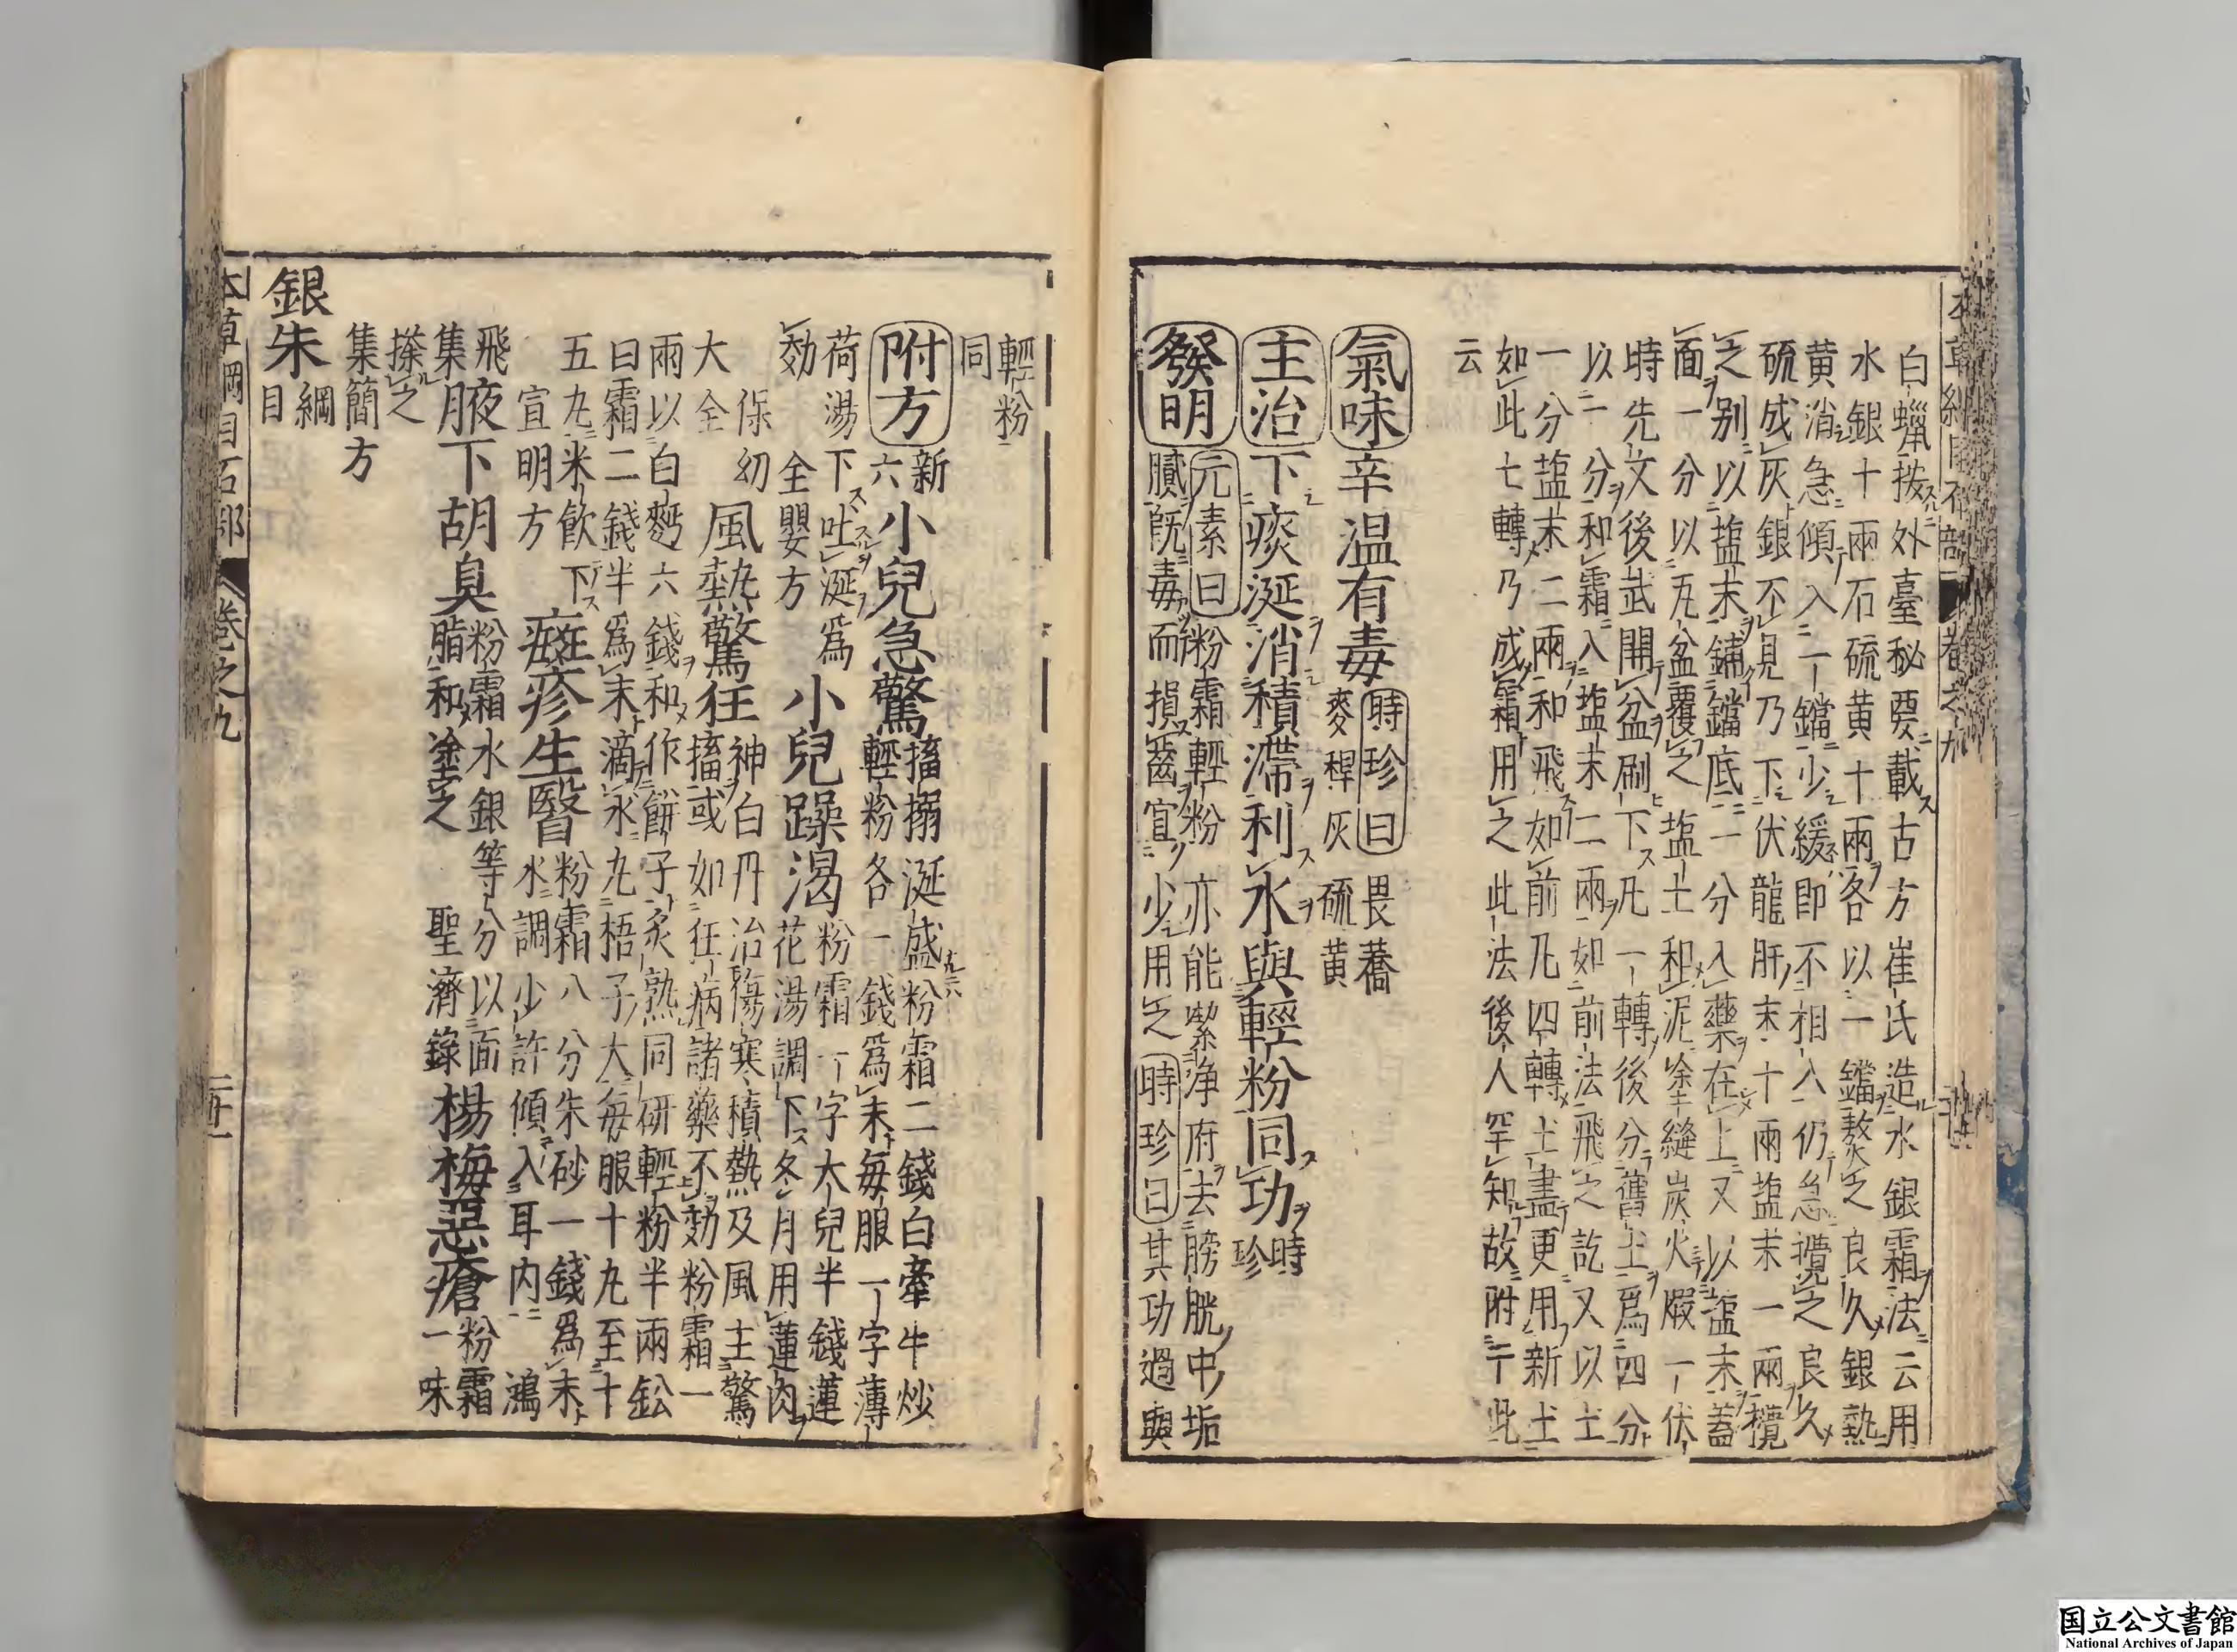 白蠟按外臺秘要載古方崔氏造水銀霜法云用
水銀十兩石硫黄十兩各以一鐺熬之良久銀熱
黄消急傾入一鐺少緩即不相入仍急攪之良久
硫成灰銀不見乃下伏龍肝末十兩鹽末一兩攪
之別以鹽末鋪鐺底一分入藥在上又以鹽末蓋
面一分以瓦盆覆之鹽土和泥塗縫炭火煅一伏
時先文後武開盆刷下凡一轉後分舊土爲四分
以一分和霜入鹽末二兩如前法飛之訖又以土
一分鹽末二兩和飛如前凡四轉土盡更用新土
如此七轉乃成霜用之此法後人罕知故附于此
云
氣味辛温有毒
時珍曰畏蕎
麥稈灰硫黄
主治下痰涎消積滯利水與輕粉同功
時
珍
發明
元素曰粉霜輕粉亦能㓗淨府去膀胱中垢
膩既毒而損齒宜少用之時珍曰其功過與
輕粉
同
附方
新
六
小兒急驚
搐搦涎盛粉霜二錢白牽牛炒
輕粉各一錢爲末每服一字薄
荷湯下吐涎爲
効 全嬰方
小兒躁渴
粉霜一字大兒半錢蓮
花湯調下冬月用蓮肉
保幼
大全
風熱驚狂
神白丹治傷寒積熱及風主驚
搐或如狂病諸藥不効粉霜一
兩以白麪六錢和作餅子炙熟同研輕粉半兩鈆
白霜二錢半爲末滴水丸梧子大每服十丸至十
五丸米飲下
宣明方
癍疹生瞖
粉霜八分朱砂一錢爲末
水調少許傾入耳内 鴻
飛
集
腋下胡臭
粉霜水銀等分以面
脂和塗之 聖濟錄
楊梅惡瘡
粉霜
一味
搽之
集簡方
銀朱
綱
目
本草綱目石部
卷之九
国立公文書館
National Archives of Japan